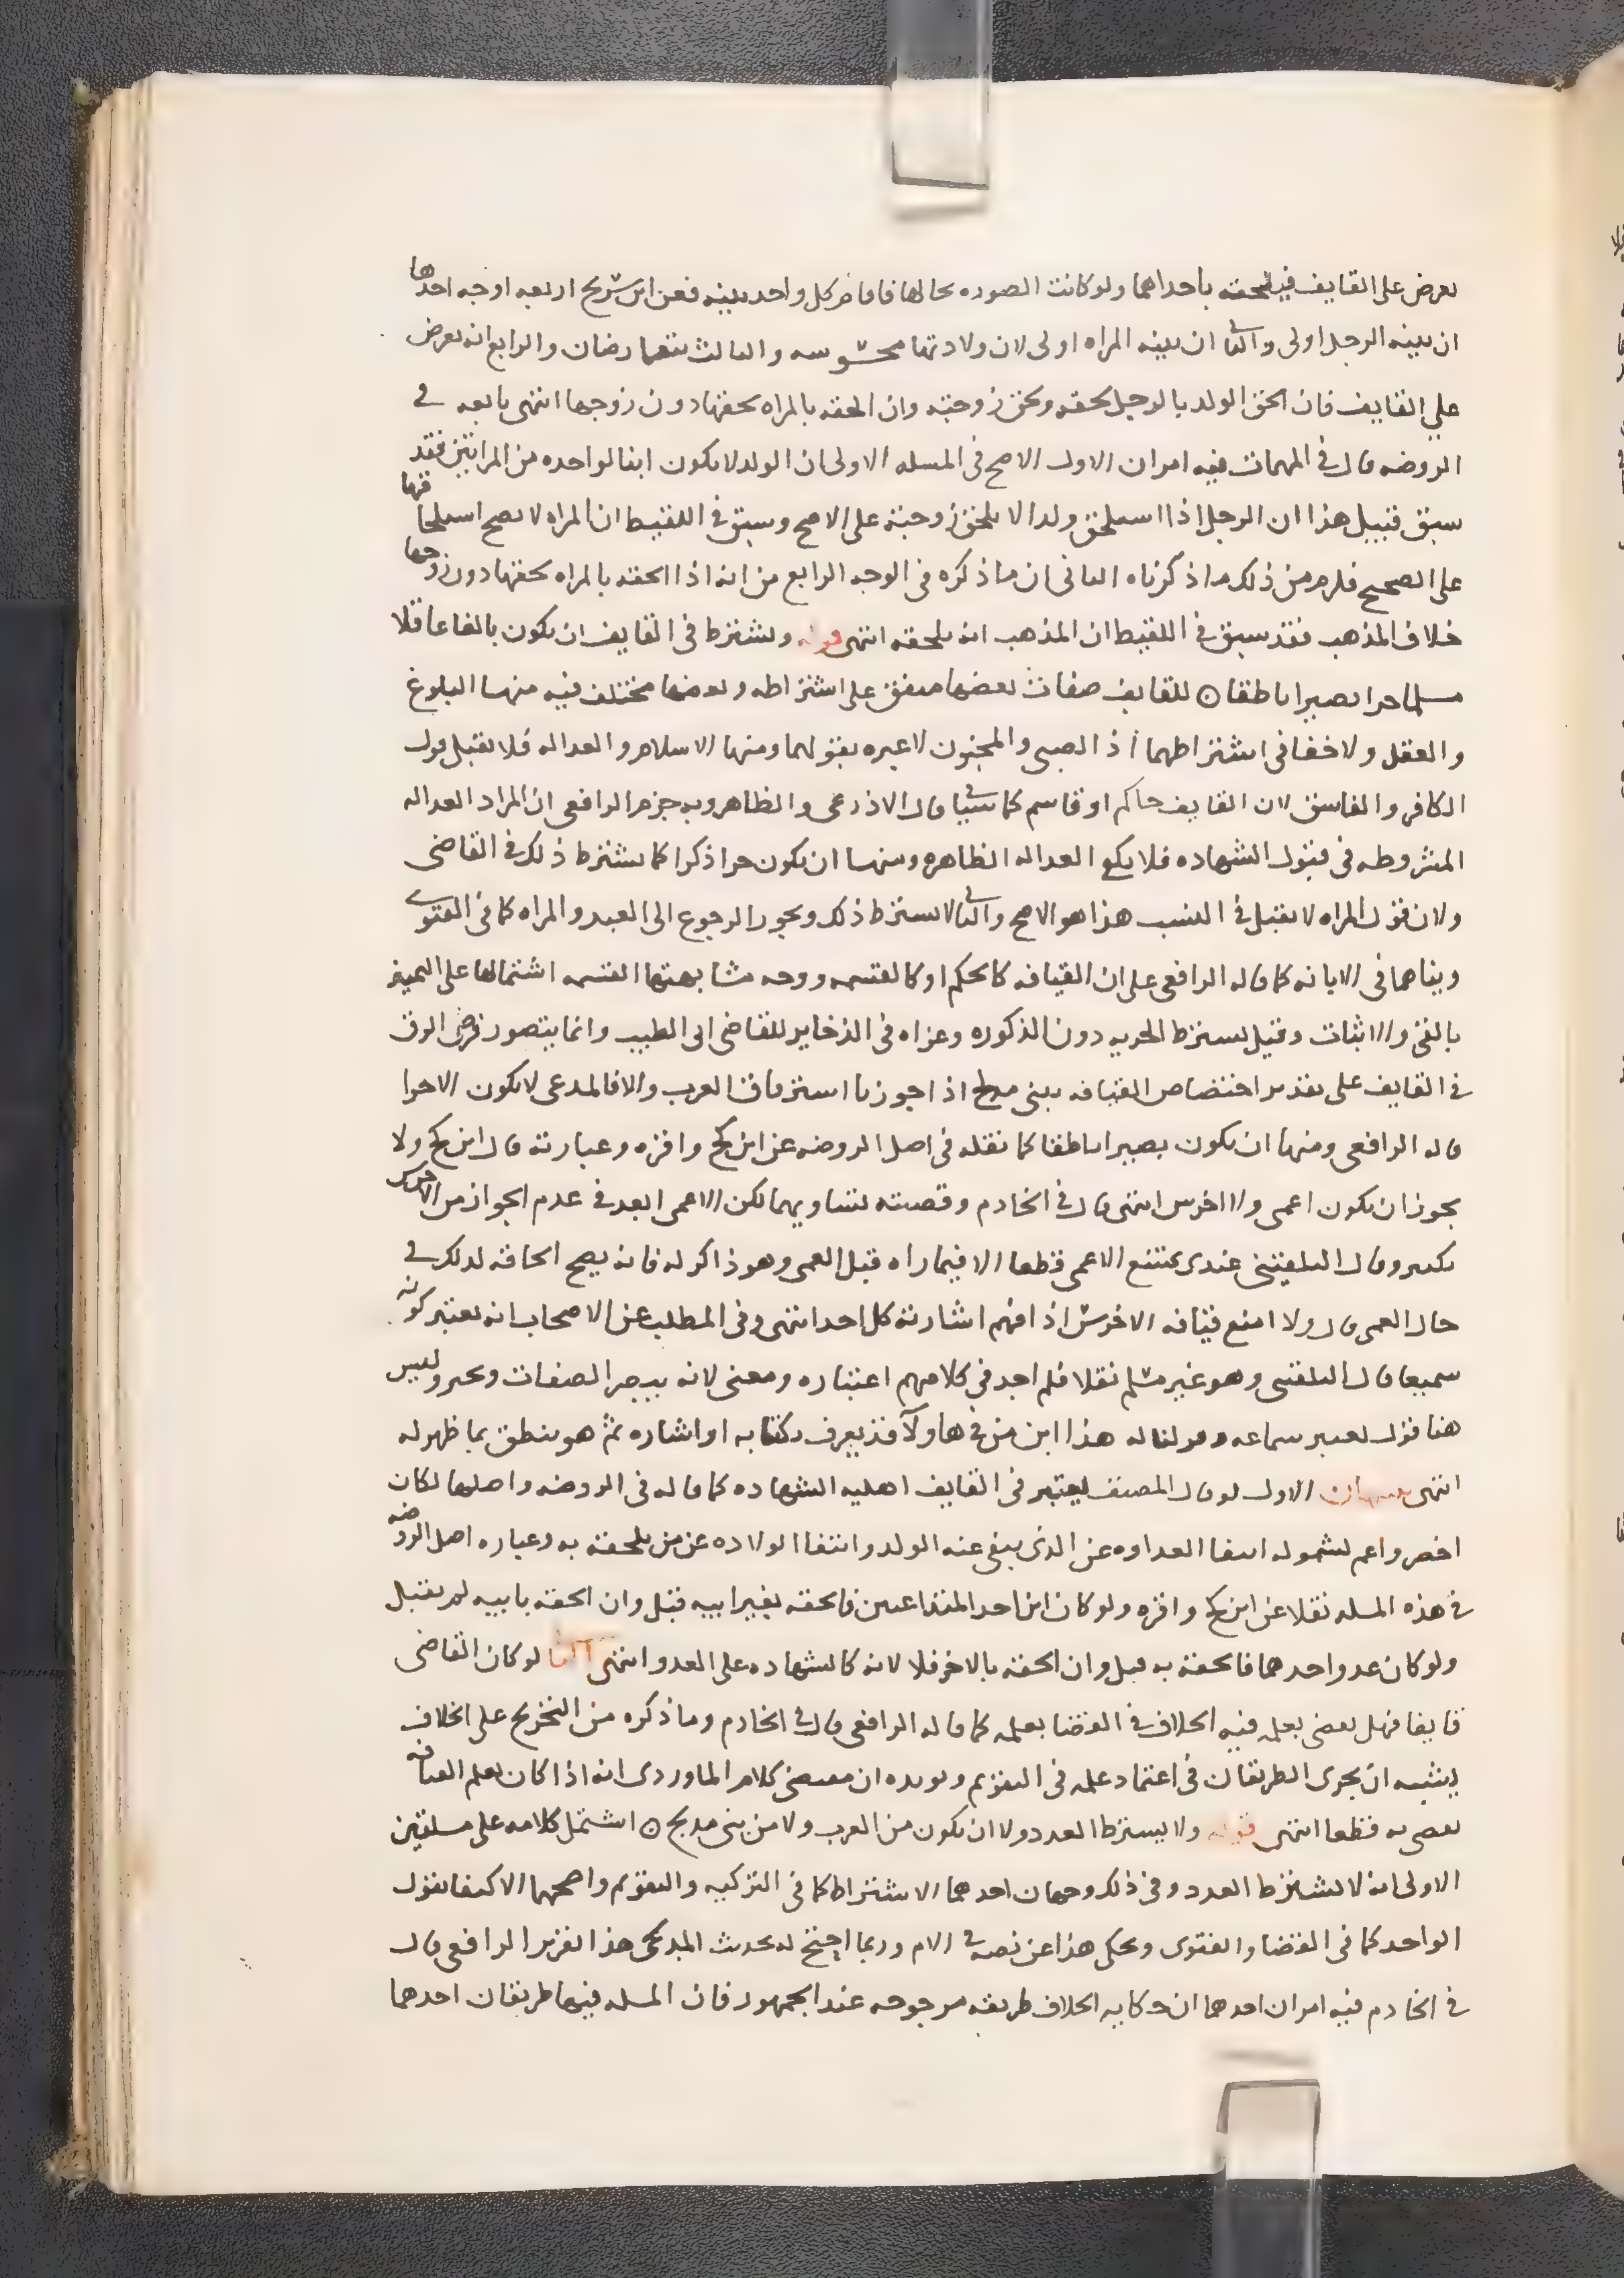 يعرض على القايف فيلحقه باحداهما ولو كانت الصوره بحالها فاقام كل واحد بينه فعن ابن سريج اربعه اوجه احدها
ان بينه الرجل اولى والثاني ان بينه المراه اولى لان ولادتها محسوسه والثالث يتعارضان والرابع انه يعرض
على القايف فان الحق الولد بالرجل لحقه ولحق زوجته وان الحقه بالمراه لحقها دون زوجها انتهى تابعه في
الروضه قال في المهمات فيه امران الاول الاصح في المسله الاولى ان الولد لا يكون ابنا لواحده من المراتين فقد
سبق قبيل هذا ان الرجل اذا استلحق ولدا لا يلحق زوجته على الاصح وسبق في اللقيط ان المراه لا يصح استلحاقها
على الصحيح فلزم من ذلك ما ذكرناه الثاني ان ما ذكره في الوجه الرابع من انه اذا الحقه بالمراه لحقها دون زوجها
خلاف المذهب فقد سبق في اللقيط ان المذهب انه يلحقه انتهى قوله ويشترط في القايف ان يكون بالغا عاقلا
مسلما حرا بصيرا ناطقا ٥ للقايف صفات بعضها متفق على اشتراطه وبعضها مختلف فيه منها البلوغ
والعقل ولا خفا في اشتراطهما اذ الصبي والمجنون لا عبره بقولهما ومنها الاسلام والعداله فلا يقبل قول
الكافر والفاسق لان القايف حاكم او قاسم كما سياتي قال الاذرعي والظاهر وبه جزم الرافعي ان المراد العداله
المشروطه في قبول الشهاده فلا يكفي العداله الظاهره ومنها ان يكون حرا ذكرا كما يشترط ذلك في القاضي
ولان قول المراه لا يقبل في النسب هذا هو الاصح والثاني لا يشترط ذلك ويجوز الرجوع الى العبد والمراه كما في الفتوى
وبناهما في الابانه كما قاله الرافعي على ان القيافه كالحكم او كالقسمه ووجه مشابهتها القسمه اشتمالها على التمييز
بالنفي والاثبات وقيل يشترط الحريه دون الذكوره وعزاه في الذخاير للقاضي ابي الطيب وانما يتصور فرض الرق
في القايف على تقدير اختصاص القيافه ببني مدلج اذا جوزنا استرقاق العرب والا فالمدعى لا يكون الا حرا
قاله الرافعي ومنها ان يكون بصيرا ناطقا كما نقله في اصل الروضه عن ابن كج واقره وعبارته قال ابن كج ولا
يجوز ان يكون اعمى ولا اخرس انتهى قال في الخادم وقضيته تساويهما لكن الاعمى ابعد في عدم الجواز من الاخرس
بكثير وقال البلقيني عندي يمتنع الاعمى قطعا الا فيما راه قبل العمى وهو ذاكر له فانه يصح الحاقه لذلك في
حال العمى قال ولا امنع قيافه الاخرس اذا فهم اشارته كل احد انتهى وفي المطلب عن الاصحاب انه يعتبر كونه
سميعا قال البلقيني وهو غير مسلم نقلا فلم اجد في كلامهم اعتباره ومعنى لانه يبصر الصفات ويخبر وليس
هنا قول يعتبر سماعه وقولنا له هذا ابن من في هاولا قد يعرف بكتابه او اشاره ثم هو ينطق بما ظهر له
انتهى تنبيهان الاول لو قال المصنف يعتبر في القايف اهليه الشهاده كما قاله في الروضه واصلها لكان
اخصر واعم لشموله انتفا العداوه عن الذي ينفي عنه الولد وانتفا الولاده عن من يلحقه به وعباره اصل الروضه
في هذه المسله نقلا عن ابن كج واقره ولو كان ابن احد المتداعيين فالحقه بغير ابيه قبل وان الحقه بابيه لم يقبل
ولو كان عدو احدهما فالحقه به قبل وان الحقه بالاخر فلا لانه كالشهاده على العدو انتهى الثاني لو كان القاضي
قايفا فهل يقضي بعلمه فيه الخلاف في القضا بعلمه كما قاله الرافعي قال في الخادم وما ذكره من التخريج على الخلاف
يشبه ان يجري الطريقان في اعتماد علمه في التقويم ويويده ان مقتضى كلام الماوردي انه اذا كان يعلم القيافه
يقضي به قطعا انتهى قوله ولا يشترط العدد ولا ان يكون من العرب ولا من بني مدلج ٥ اشتمل كلامه على مسلتين
الاولى انه لا يشترط العدد وفي ذلك وجهان احدهما الاشتراط كما في التزكيه والتقويم واصحهما الاكتفا بقول
الواحد كما في القضا والفتوى ويحكى هذا عن نصه في الام وربما احتج له بحديث المدلجي هذا تقرير الرافعي قال
في الخادم فيه امران احدهما ان حكايه الخلاف طريقه مرجوحه عند الجمهور فان المسله فيها طريقان احدهما